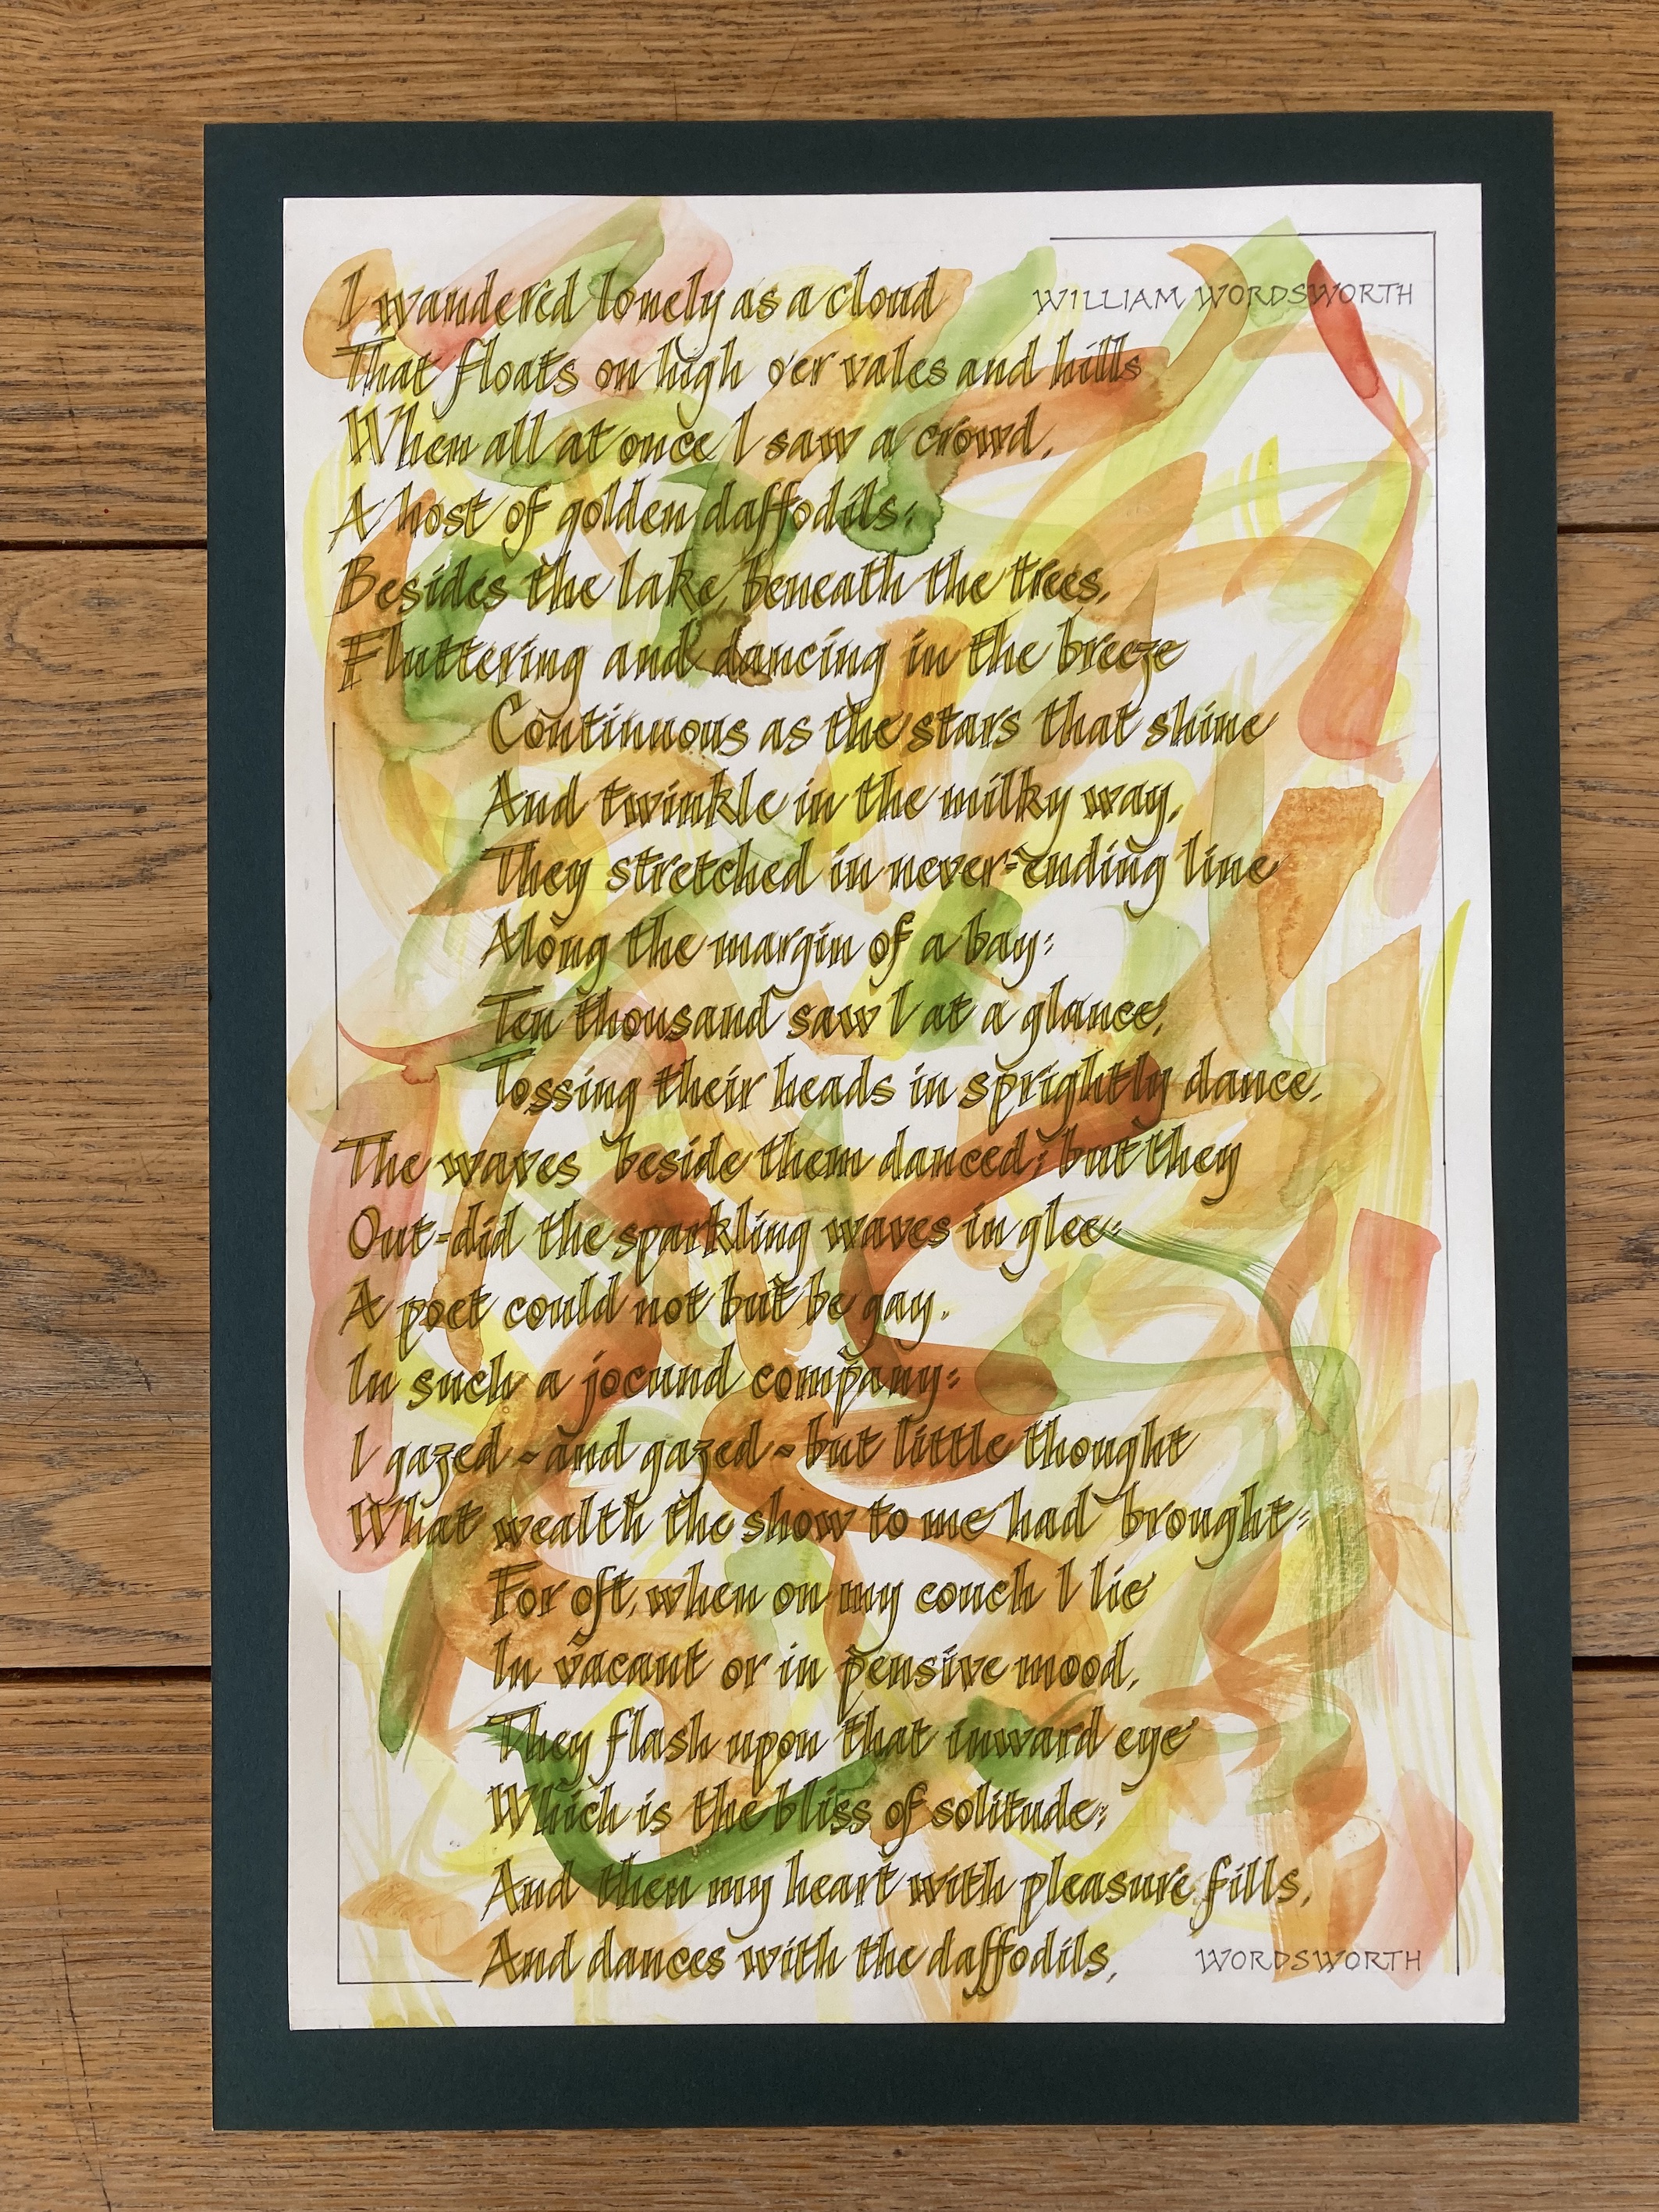 I wandered lonely as a cloud
WILLIAM WORDSWORTH
That floats on high o'er vales and hills
When all at once I saw a crowd,
A host of golden daffodils;
Besides the lake, beneath the trees,
Fluttering and dancing in the breeze
Continuous as the stars that shine
And twinkle in the milky way,
They stretched in never-ending line
Along the margin of a bay:
Ten thousand saw I at a glance,
Tossing their heads in sprightly dance.
The waves beside them danced; but they
Out-did the sparkling waves in glee:
A poet could not but be gay,
In such a jocund company:
I gazed - and gazed - but little thought
What wealth the show to me had brought:
For oft, when on my couch I lie
In vacant or in pensive mood,
They flash upon that inward eye
Which is the bliss of solitude;
And then my heart with pleasure fills,
And dances with the daffodils.
WORDSWORTH